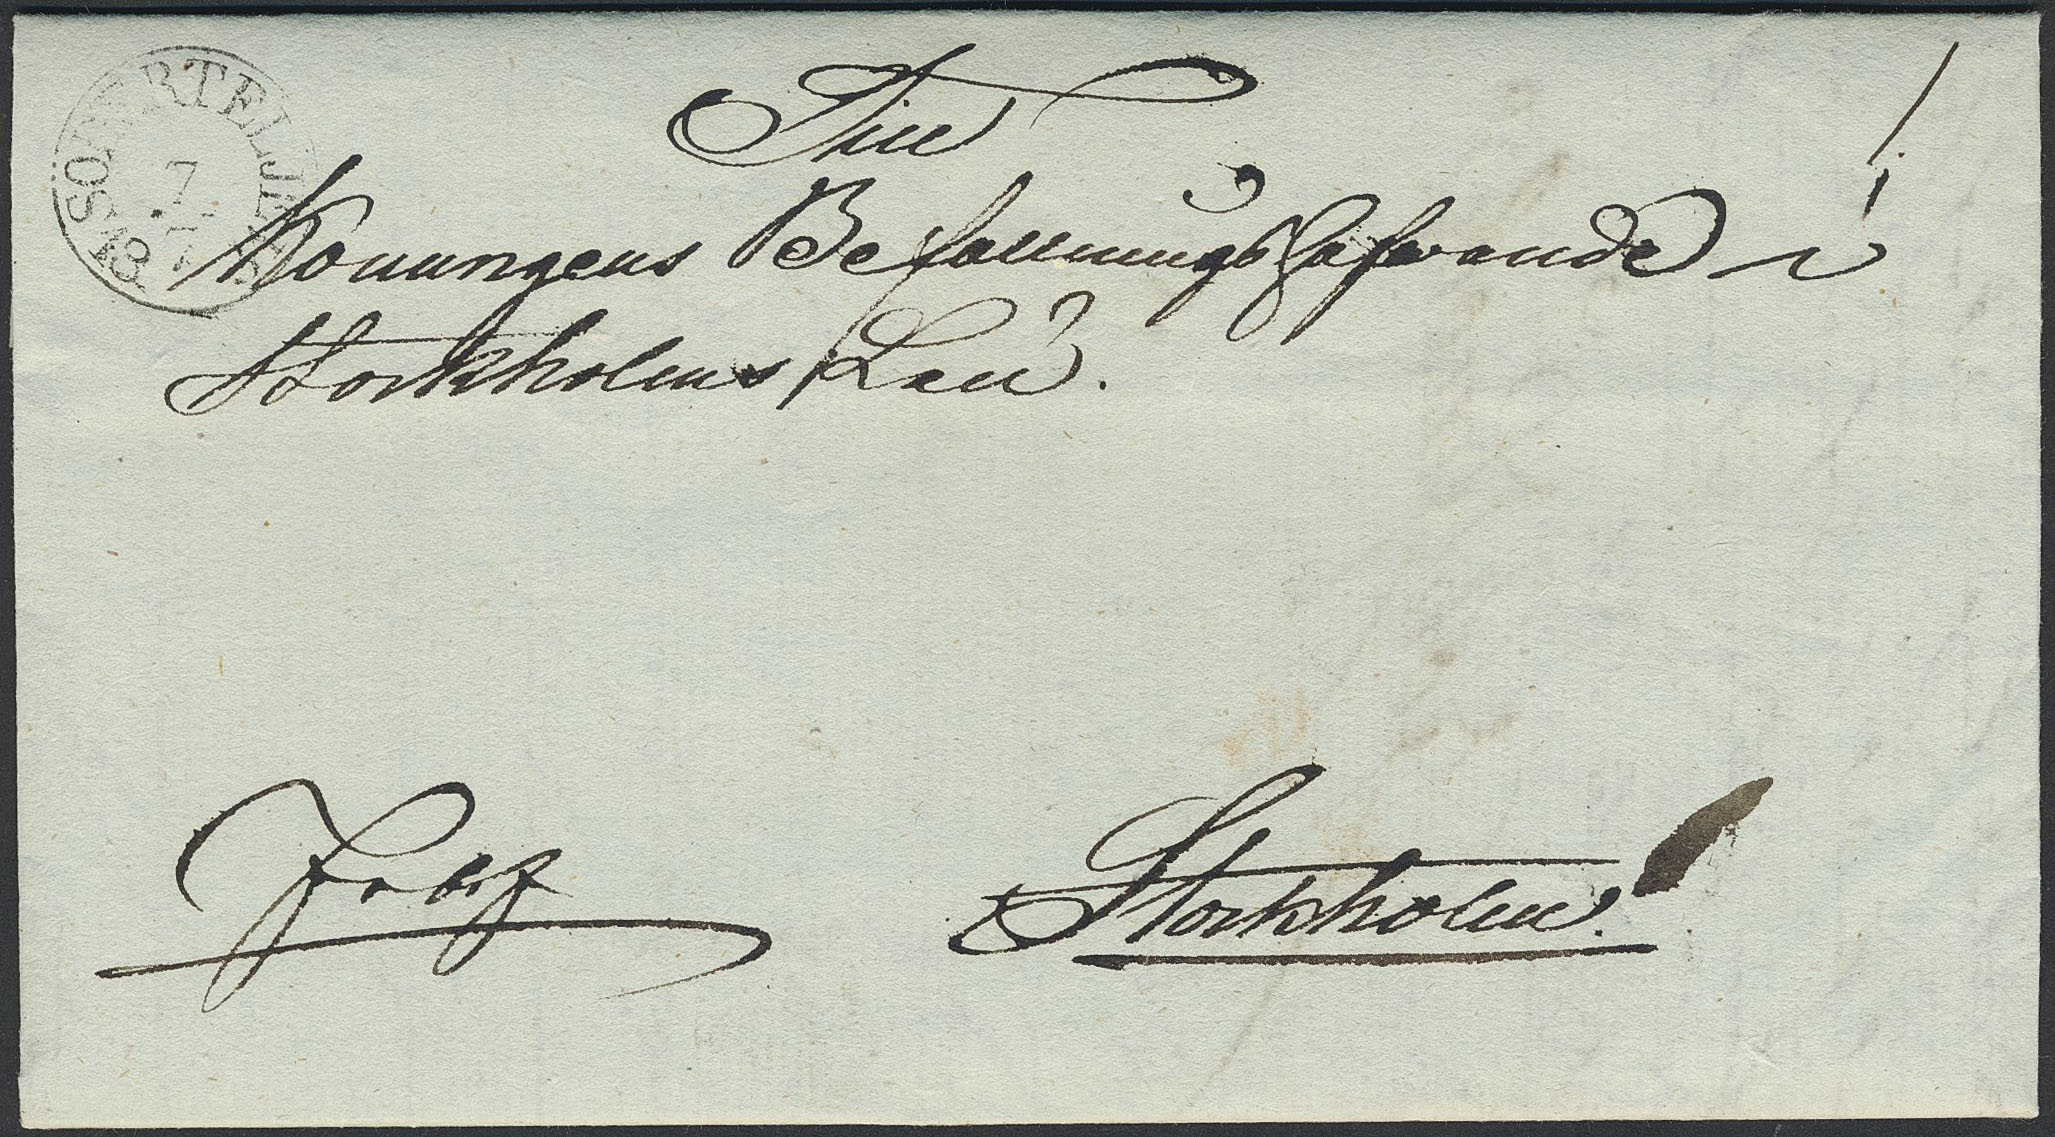 SÖDERTELJE
7
7
Till
Konungens Befallningshafvande i
Stockholms Län.
Stockholm.